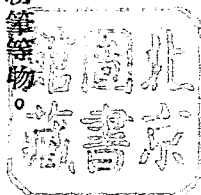 筆等物。
北京
圖書
館藏